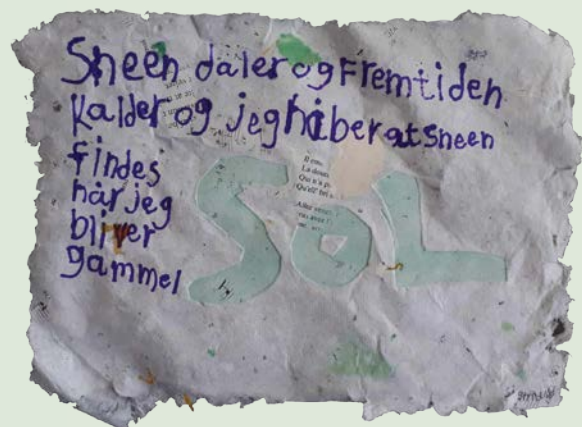 Sneen daler og Fremtiden
Kalder og jeg håber at sneen
findes
når jeg
bliver
gammel
SOL